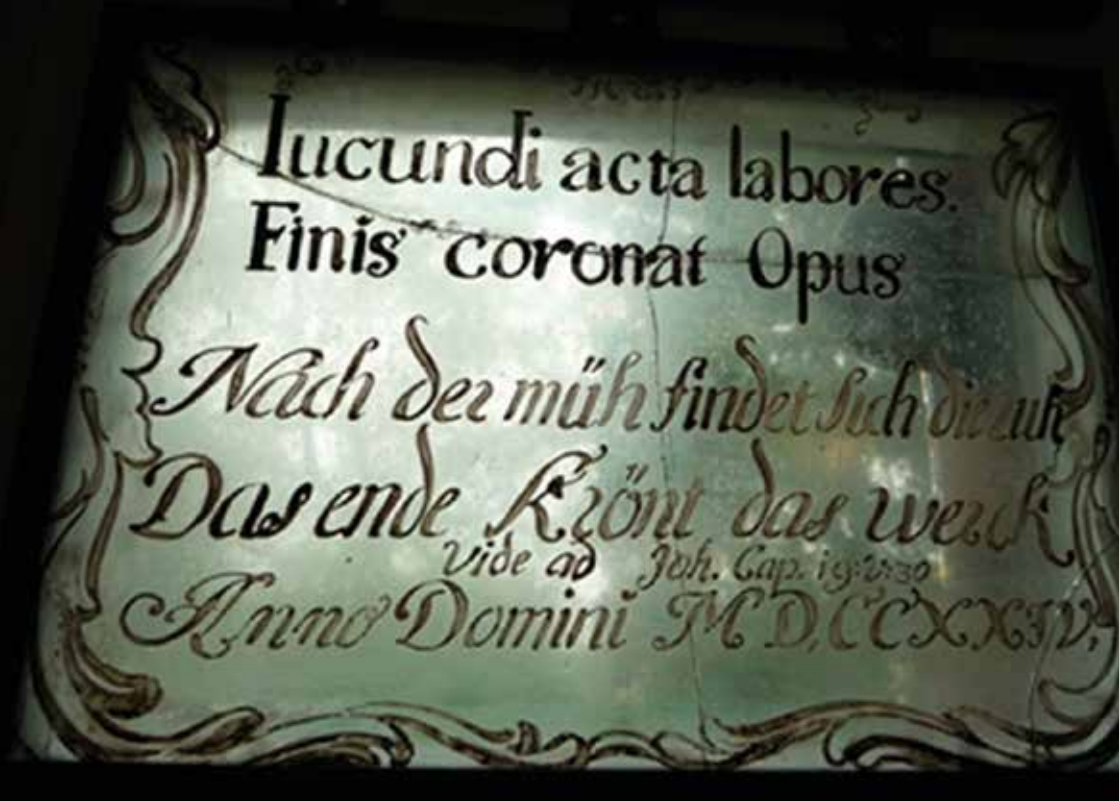 Iucundi acta labores.
Finis coronat Opus
Nach der müh findet sich die ruh
Das ende Krönt das werck
vide ad Joh. Cap. 19. v. 30
Anno Domini MD,CCXXIV,